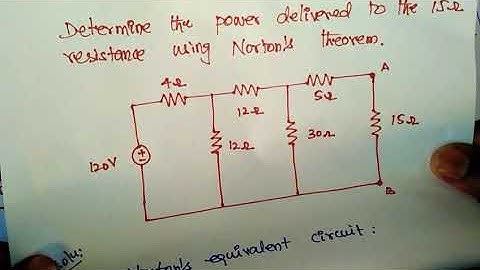 Determine the power delivered to the 15Ω
resistance using Norton's theorem.
4Ω
12Ω
5Ω
A
120V
+
-
12Ω
30Ω
15Ω
B
Solu:
Norton's equivalent circuit: